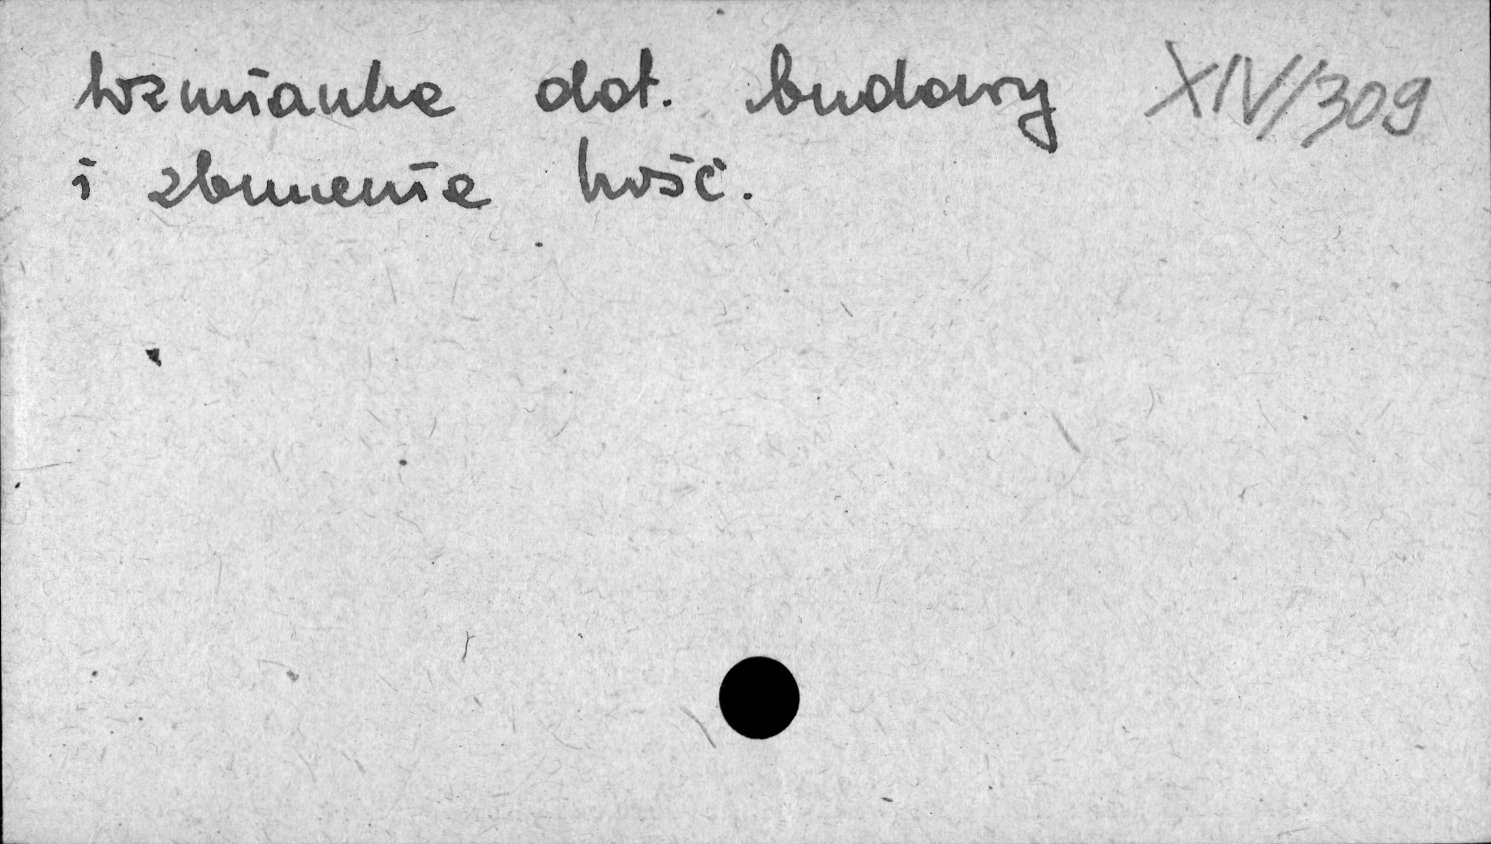 wzmianka dot. budowy XIV/309
i zburzenia kość.